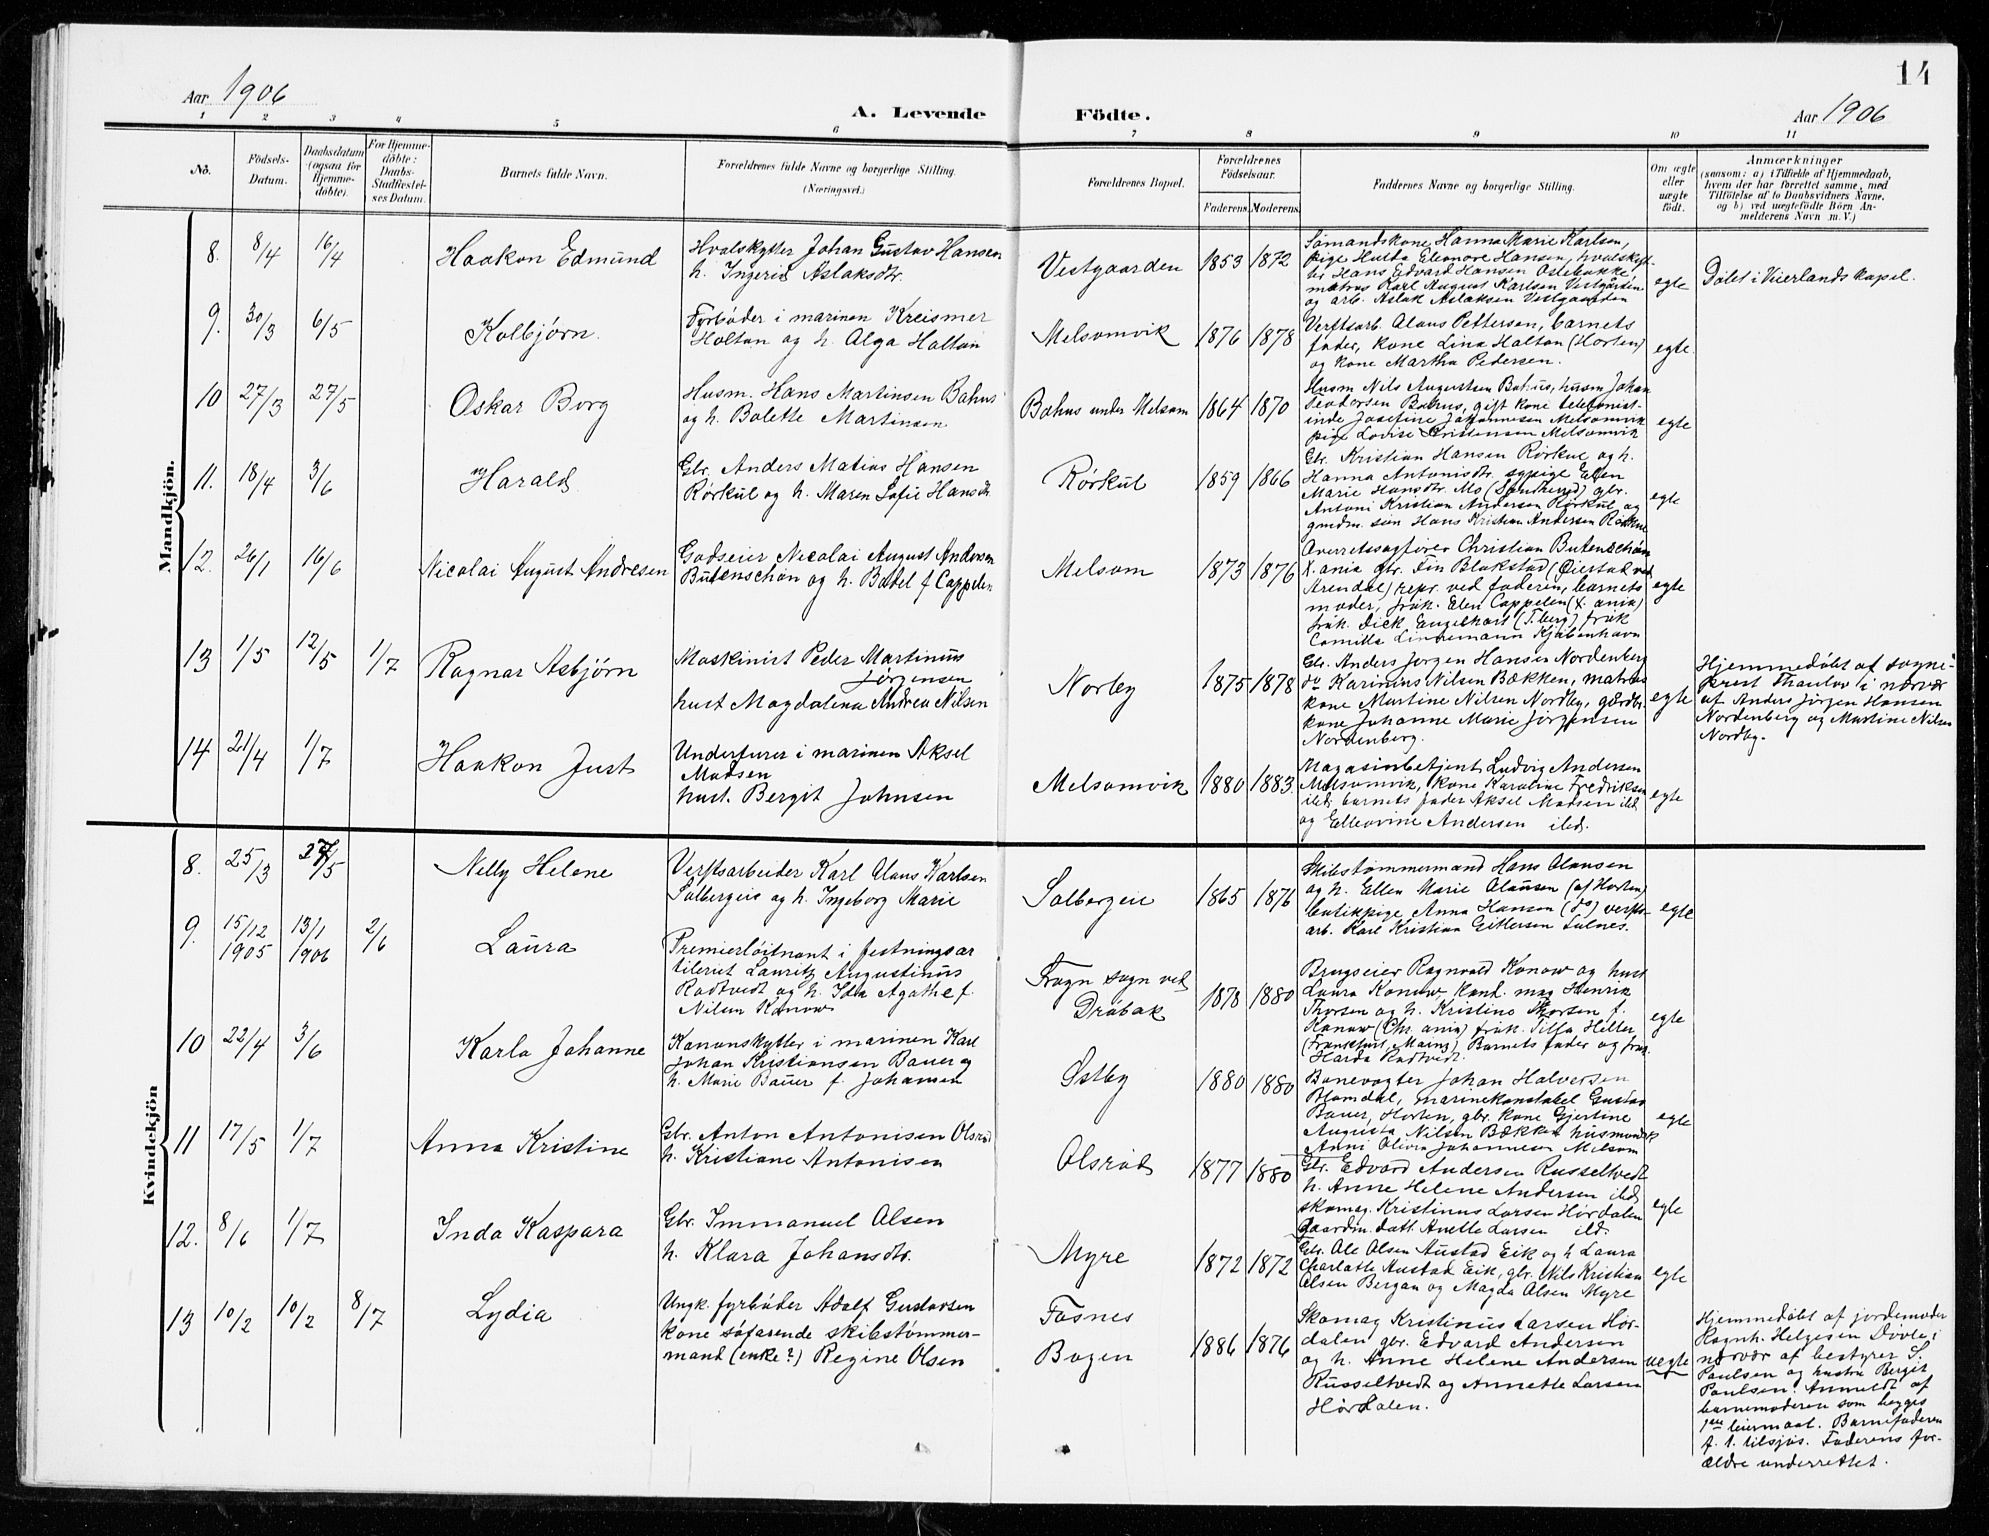 14
Aar 1906
A. Levende Födte.
Aar 1906
1 2 3 4 5 6 7 8 9 10 11
No.
Födsels-
Datum.
Daabsdatum
(ogsaa for
Hjemme-
döbte).
For Hjemme-
döbte:
Daabs-
Stadfæstel-
ses Datum.
Barnets fulde Navn.
Forældrenes fulde Navne og borgerlige Stilling.
(Næringsvei.)
Forældrenes Bopæl.
Forældrenes
Födselsaar.
Faderens. Moderens.
Faddernes Navne og borgerlige Stilling.
Om ægte
eller
uægte
födt.
Anmærkninger
(saasom: a) i Tilfælde af Hjemmedaab,
hvem der har forrettet samme, med
Tilföielse af to Daabsvidners Navne.
og b) ved uægtefödte Börn An-
melderens Navn m. V.)
Mandkjön.
8. 8/4 16/4
Haakon Edmund
Hvalskytter Johan Gustav Hansen
h. Ingerid Aslaksdtr.
Vestgaarden
1853 1872
Sømandskone Hanna Marie Karlsen,
pige Hulda Eleonore Hansen, hvalskyt-
ter Hans Edvard Hansen Østebakke,
matros Karl August Karlsen Vestgården
og arb. Aslak Aslaksen Vestgaarden
egte
Døbt i Vierlands kapel.
9. 30/3 6/5
Kolbjørn.
Fyrbøder i marinen Kreismer
Holtan og h. Alga Holtan
Melsomvik
1876 1878
Verftsarb. Olaus Pettersen, barnets
fader, kone Lina Holtan (Horten)
og kone Martha Pedersen.
egte
10 27/3 27/5
Oskar Borg
Husm. Hans Martinsen Bahus
og h. Bolette Martinsen
Bahus under Melsom
1864 1870
Husm Nils Augustsen Bahus, husm Johan
Teodorsen Bahus, gift kone telefonist-
inde Josefine Johannesen Melsomvik
pige Lovise Kristensen Melsomvik
egte
11. 18/4 3/6
Harald
Gbr. Anders Matias Hansen
Rørkul og h. Maren Sofie Hansdtr.
Rørkul
1859 1866
Gbr. Kristian Hansen Rørkul og h.
Hanna Antonisdtr. sypige Ellen
Marie Hansdtr. Mo (Sandherred) gbr.
Antoni Kristian Andersen Rørkul og
gmdm. søn Hans Kristian Andersen Rørkul
egte
12. 26/1 16/6
Nicolai August Andresen
Godseier Nicolai August Andresen
Butenschøn og h. Bodel f Cappelen
Melsom
1873 1876
Overretssagfører Christian Butenschøn
X.ania gbr. Fin Blakstad (Øiestad ved
Arendal) repr. ved faderen, barnets
moder, frøk. Elen Cappelen (X.ania)
frøk. Dick Engelhart (T.berg) frøk
Camilla Linnemann Kjøbenhavn
egte
13 1/5 12/5 1/7
Ragnar Asbjørn
Maskinist Peder Martinus
Jørgensen
hust Magdalena Andrea Nilsen
Norby
1875 1878
Gbr. Anders Jørgen Hansen Nordenberg
do Karinius Nilsen Bækken, matros
kone Martine Nilsen Nordby, gårdbr.
kone Johanne Marie Jørgensen
Nordenberg.
egte
Hjemmedøbt af sogne-
prest Thaulow i nærvær
af Anders Jørgen Hansen
Nordenberg og Martine Nilsen
Nordby.
14 21/4 1/7
Haakon Just
Underfurer i marinen Aksel
Madsen
hust. Bergit Johnsen
Melsomvik
1880 1883.
Magasinbetjent Ludvig Andersen
Melsomvik, kone Karoline Fredriksen
ibd. barnets fader Aksel Madsen ibd
og Elleovine Andersen ibd.
egte
Kvindekjön
8. 25/3 27/5
Nelly Helene
Verftsarbeider Karl Olaus Karlsen
Solbergeie og h. Ingeborg Marie
Solbergeie
1865 1876
Skibstømmermand Hans Olausen
og h. Ellen Marie Olausen (af Horten)
butikkpige Anna Hansen (do) verfts-
arb. Karl Kristian Gittersen Fulnes.
egte
9. 15/12 1905 13/1 1906 2/6
Laura
Premierløitnant i festningsar
tileriet Lauritz Augustinus
Rødtvedt og h. Ida Agathe f.
Nilsen Konow
Frogn sogn ved
Drøbak
1878 1880
Brugseier Ragnvald Konow og hust
Laura Konow, kand. mag Henrik
Thorsen og h. Kristine Thorsen f.
Konow (Chr. ania) frøk. Tilla Hilter
(Frankfurt, Mainz) Barnets fader og frøk
Harda Rødtvedt.
egte
10 22/4 3/6
Karla Johanne
Kanonskytter i marinen Karl
Johan Kristiansen Bauer og
h. Marie Bauer f. Johansen
Østby
1880 1880
Banevogter Johan Halvorsen
Blomdal, marinekonstabel Gustav
Bauer, Horten, gbr. kone Gjertine
Augusta Nilsen Bækken husmandsk
Anni Olivia Johannesen Melsom
egte
11 17/5 1/7
Anna Kristine
Gbr. Anton Antonisen Olsrød
h. Kristiane Antonisen
Olsrød
1877 1880
Gbr. Edvard Andersen Russeltvedt
h. Anne Helene Andersen ibd
skomag. Kristinus Larsen Hørdalen
gaardm. datt. Anette Larsen ibd.
egte
12. 8/6 1/7
Inda Kaspara
Gbr. Immanuel Olsen
h. Klara Johansdtr.
Myre
1872 1872
Gbr. Ole Olsen Austad Eik og h Laura
Charlotte Austad Eik, gbr. Nils Kristian
Olsen Bergan og Magda Olsen Myre
egte
13 10/2 10/2 8/7
Lydia
Ungk. fyrbøder Adolf Gustavsen
kone søfarende skibstømmer-
mand (enke?) Regine Olsen
Fosnes
Bogen
1886 1876
Skomag Kristinus Larsen Hør-
dalen gbr. Edvard Andersen
og h. Anne Helene Andersen
Russeltvedt og Annette Larsen
Hørdalen.
uegte
Hjemmedøbt af jordemoder
Ragnh. Helgesen Døvle i
nærvær af bestyrer S.
Paulsen og hustru Bergit
Paulsen. Anmeldt af
barnemoderen som begges
1ste leiermaal. Barnefaderen
f. t. tilsjøs. Faderens for-
ældre underrettet.